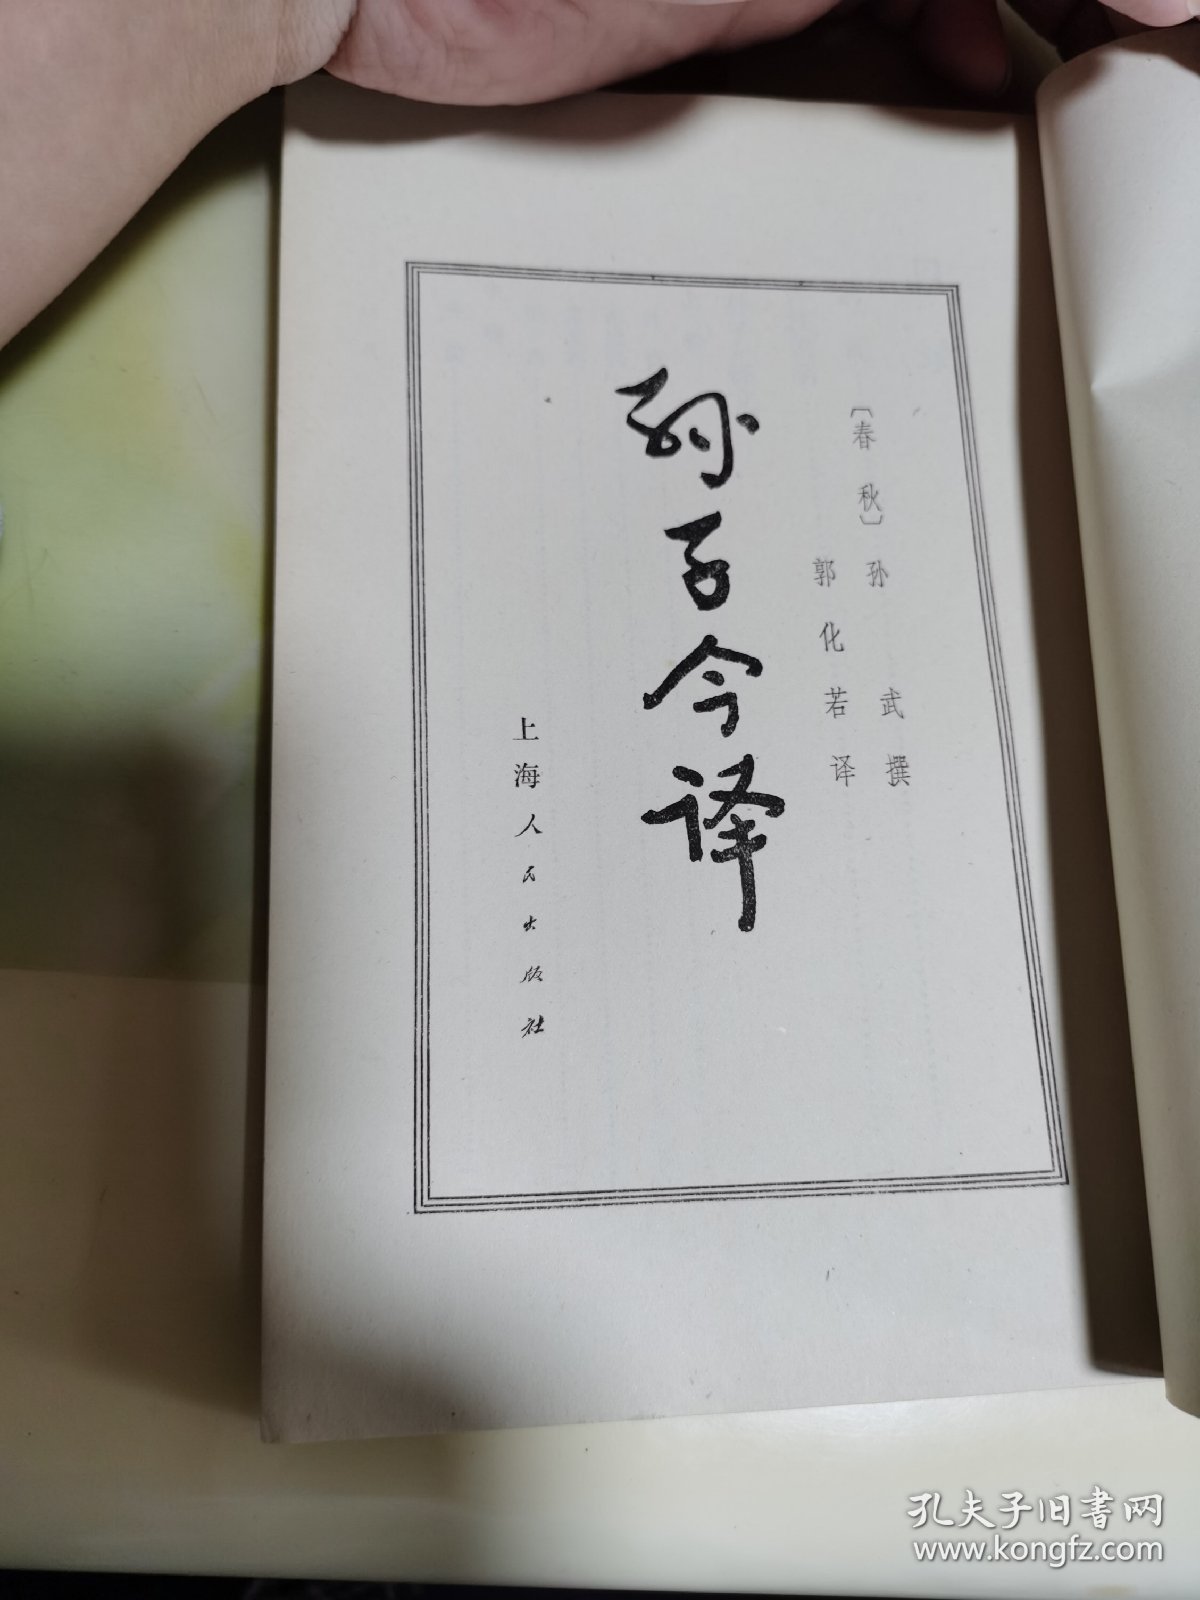 〔春秋〕孙武撰
郭化若译
孙子今译
上海人民出版社
孔夫子旧书网
www.kongfz.com